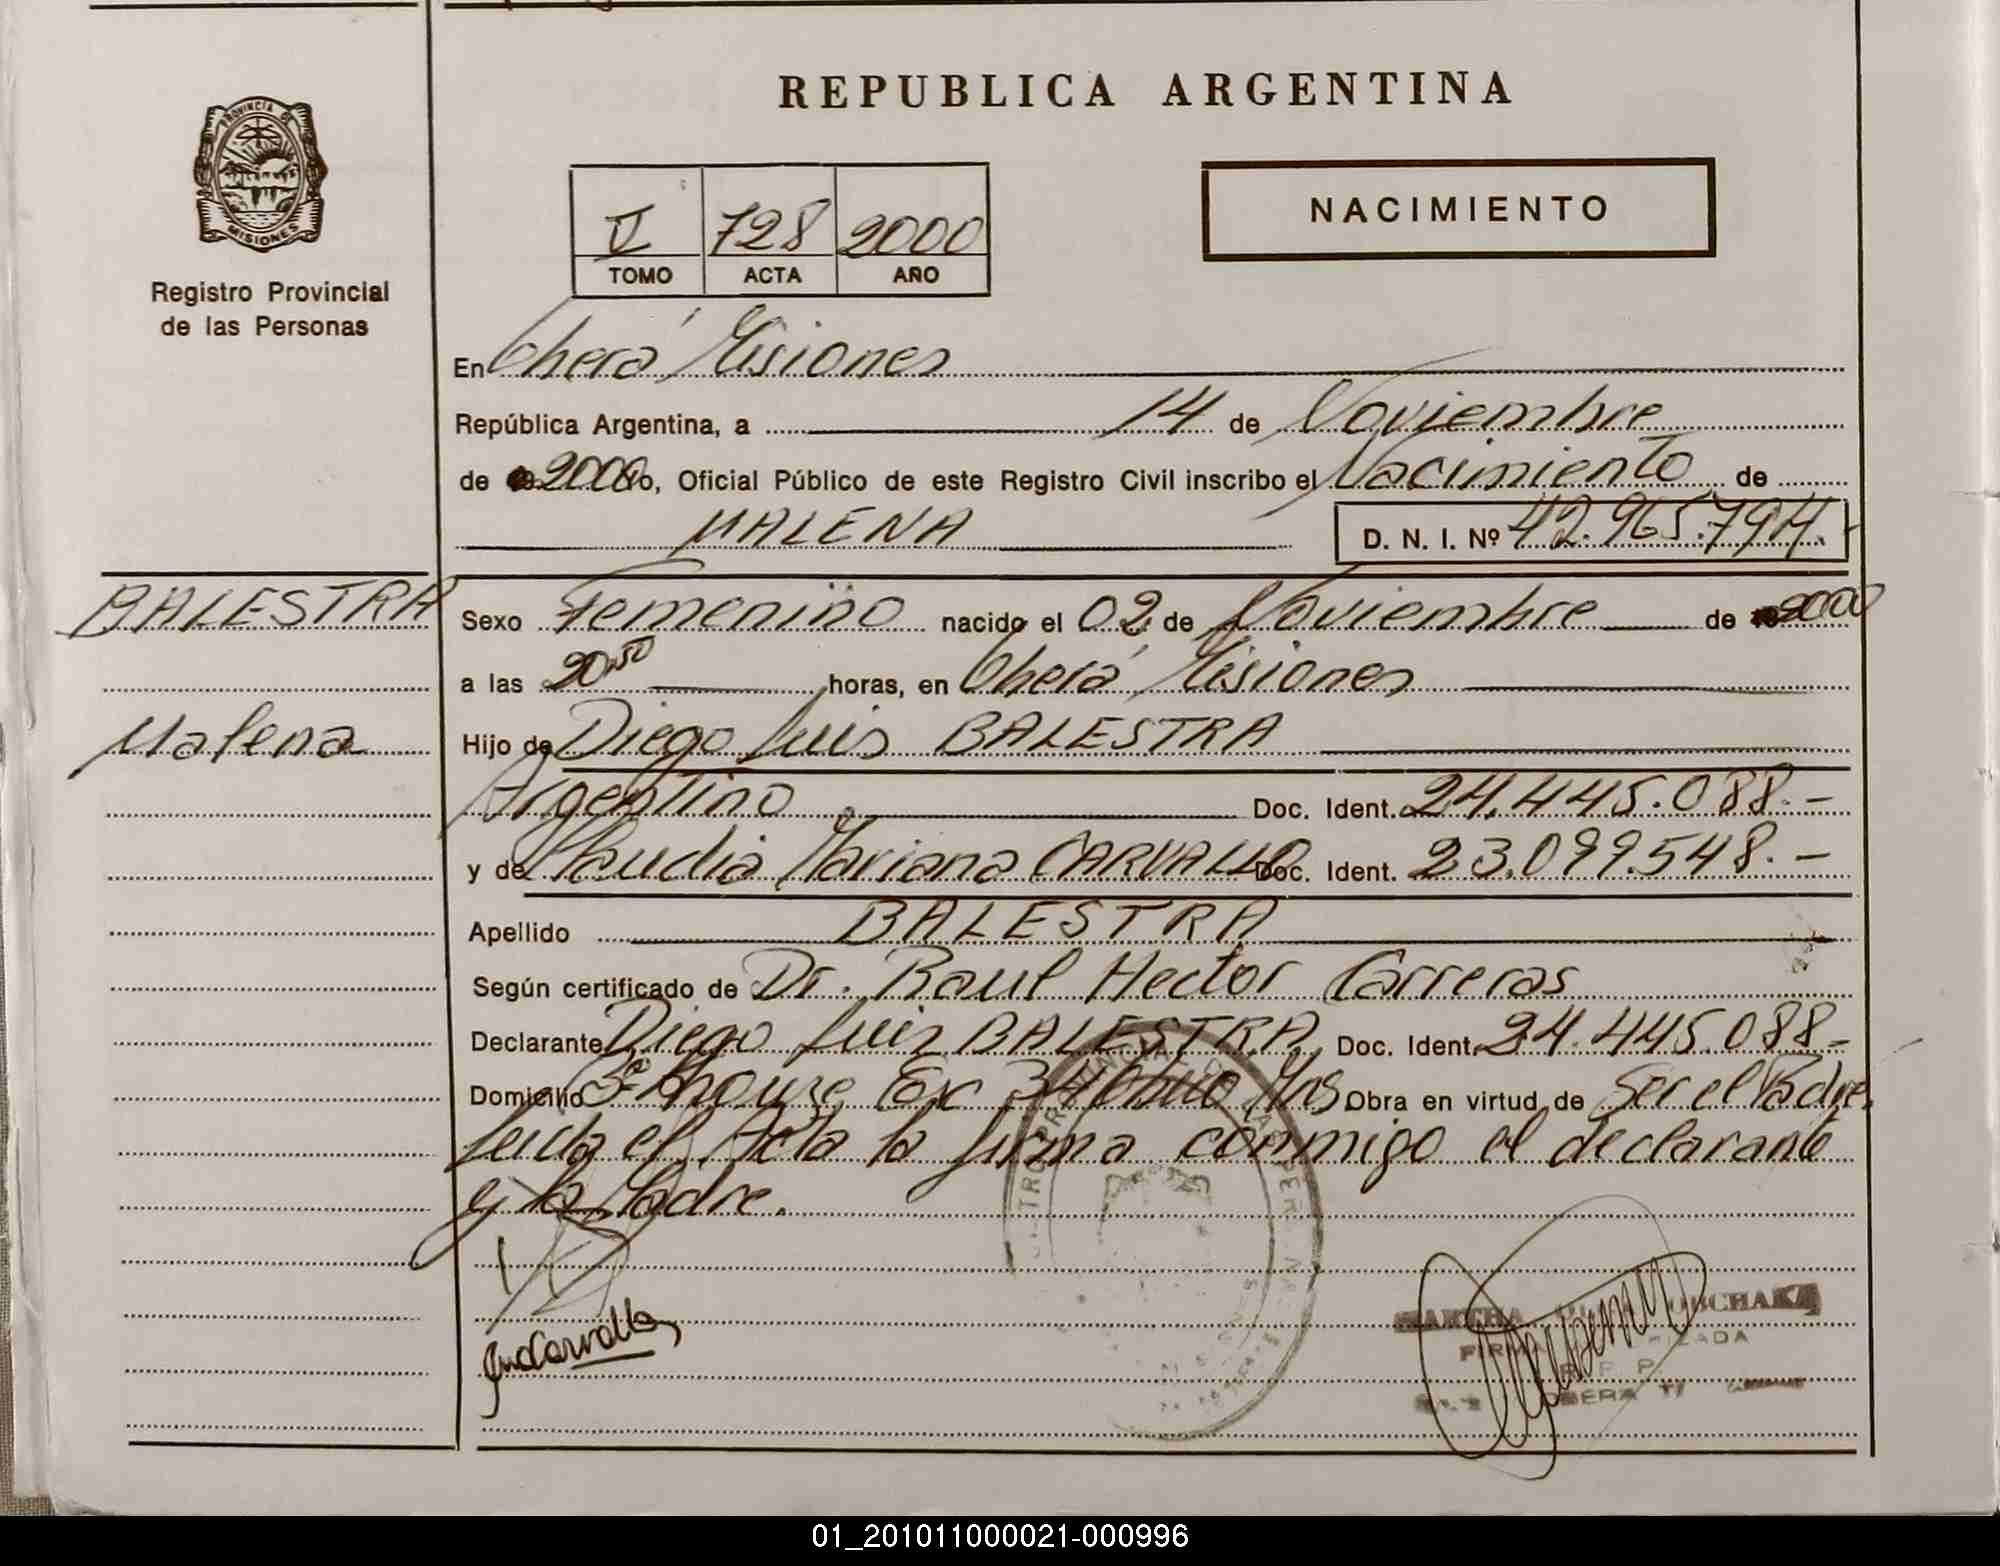 REPUBLICA ARGENTINA
PROVINCIA DE
MISIONES
Registro Provincial
de las Personas
V 728 2000
TOMO ACTA AÑO
NACIMIENTO
En Oberá Misiones
República Argentina, a 14 de Noviembre
de 2000 Yo, Oficial Público de este Registro Civil inscribo el Nacimiento de
MALENA D. N. I. Nº 42.965.794.-
BALESTRA
Malena
Sexo Femenino nacido el 02 de Noviembre de 2000
a las 20.50 horas, en Oberá Misiones
Hijo de Diego Luis BALESTRA
Argentino Doc. Ident. 24.445.088.-
y de Claudia Mariana CARVALLO Doc. Ident. 23.099.548.-
Apellido BALESTRA
Según certificado de Dr. Raul Hector Carreras
Declarante Diego Luis BALESTRA Doc. Ident. 24.445.088-
Domicilio Obra en virtud de Ser el Padre,
Leida el Acta la firma conmigo el declarante
y la Madre.
MARTHA
FIRMA
R. P. P.
OBERA
01_201011000021-000996